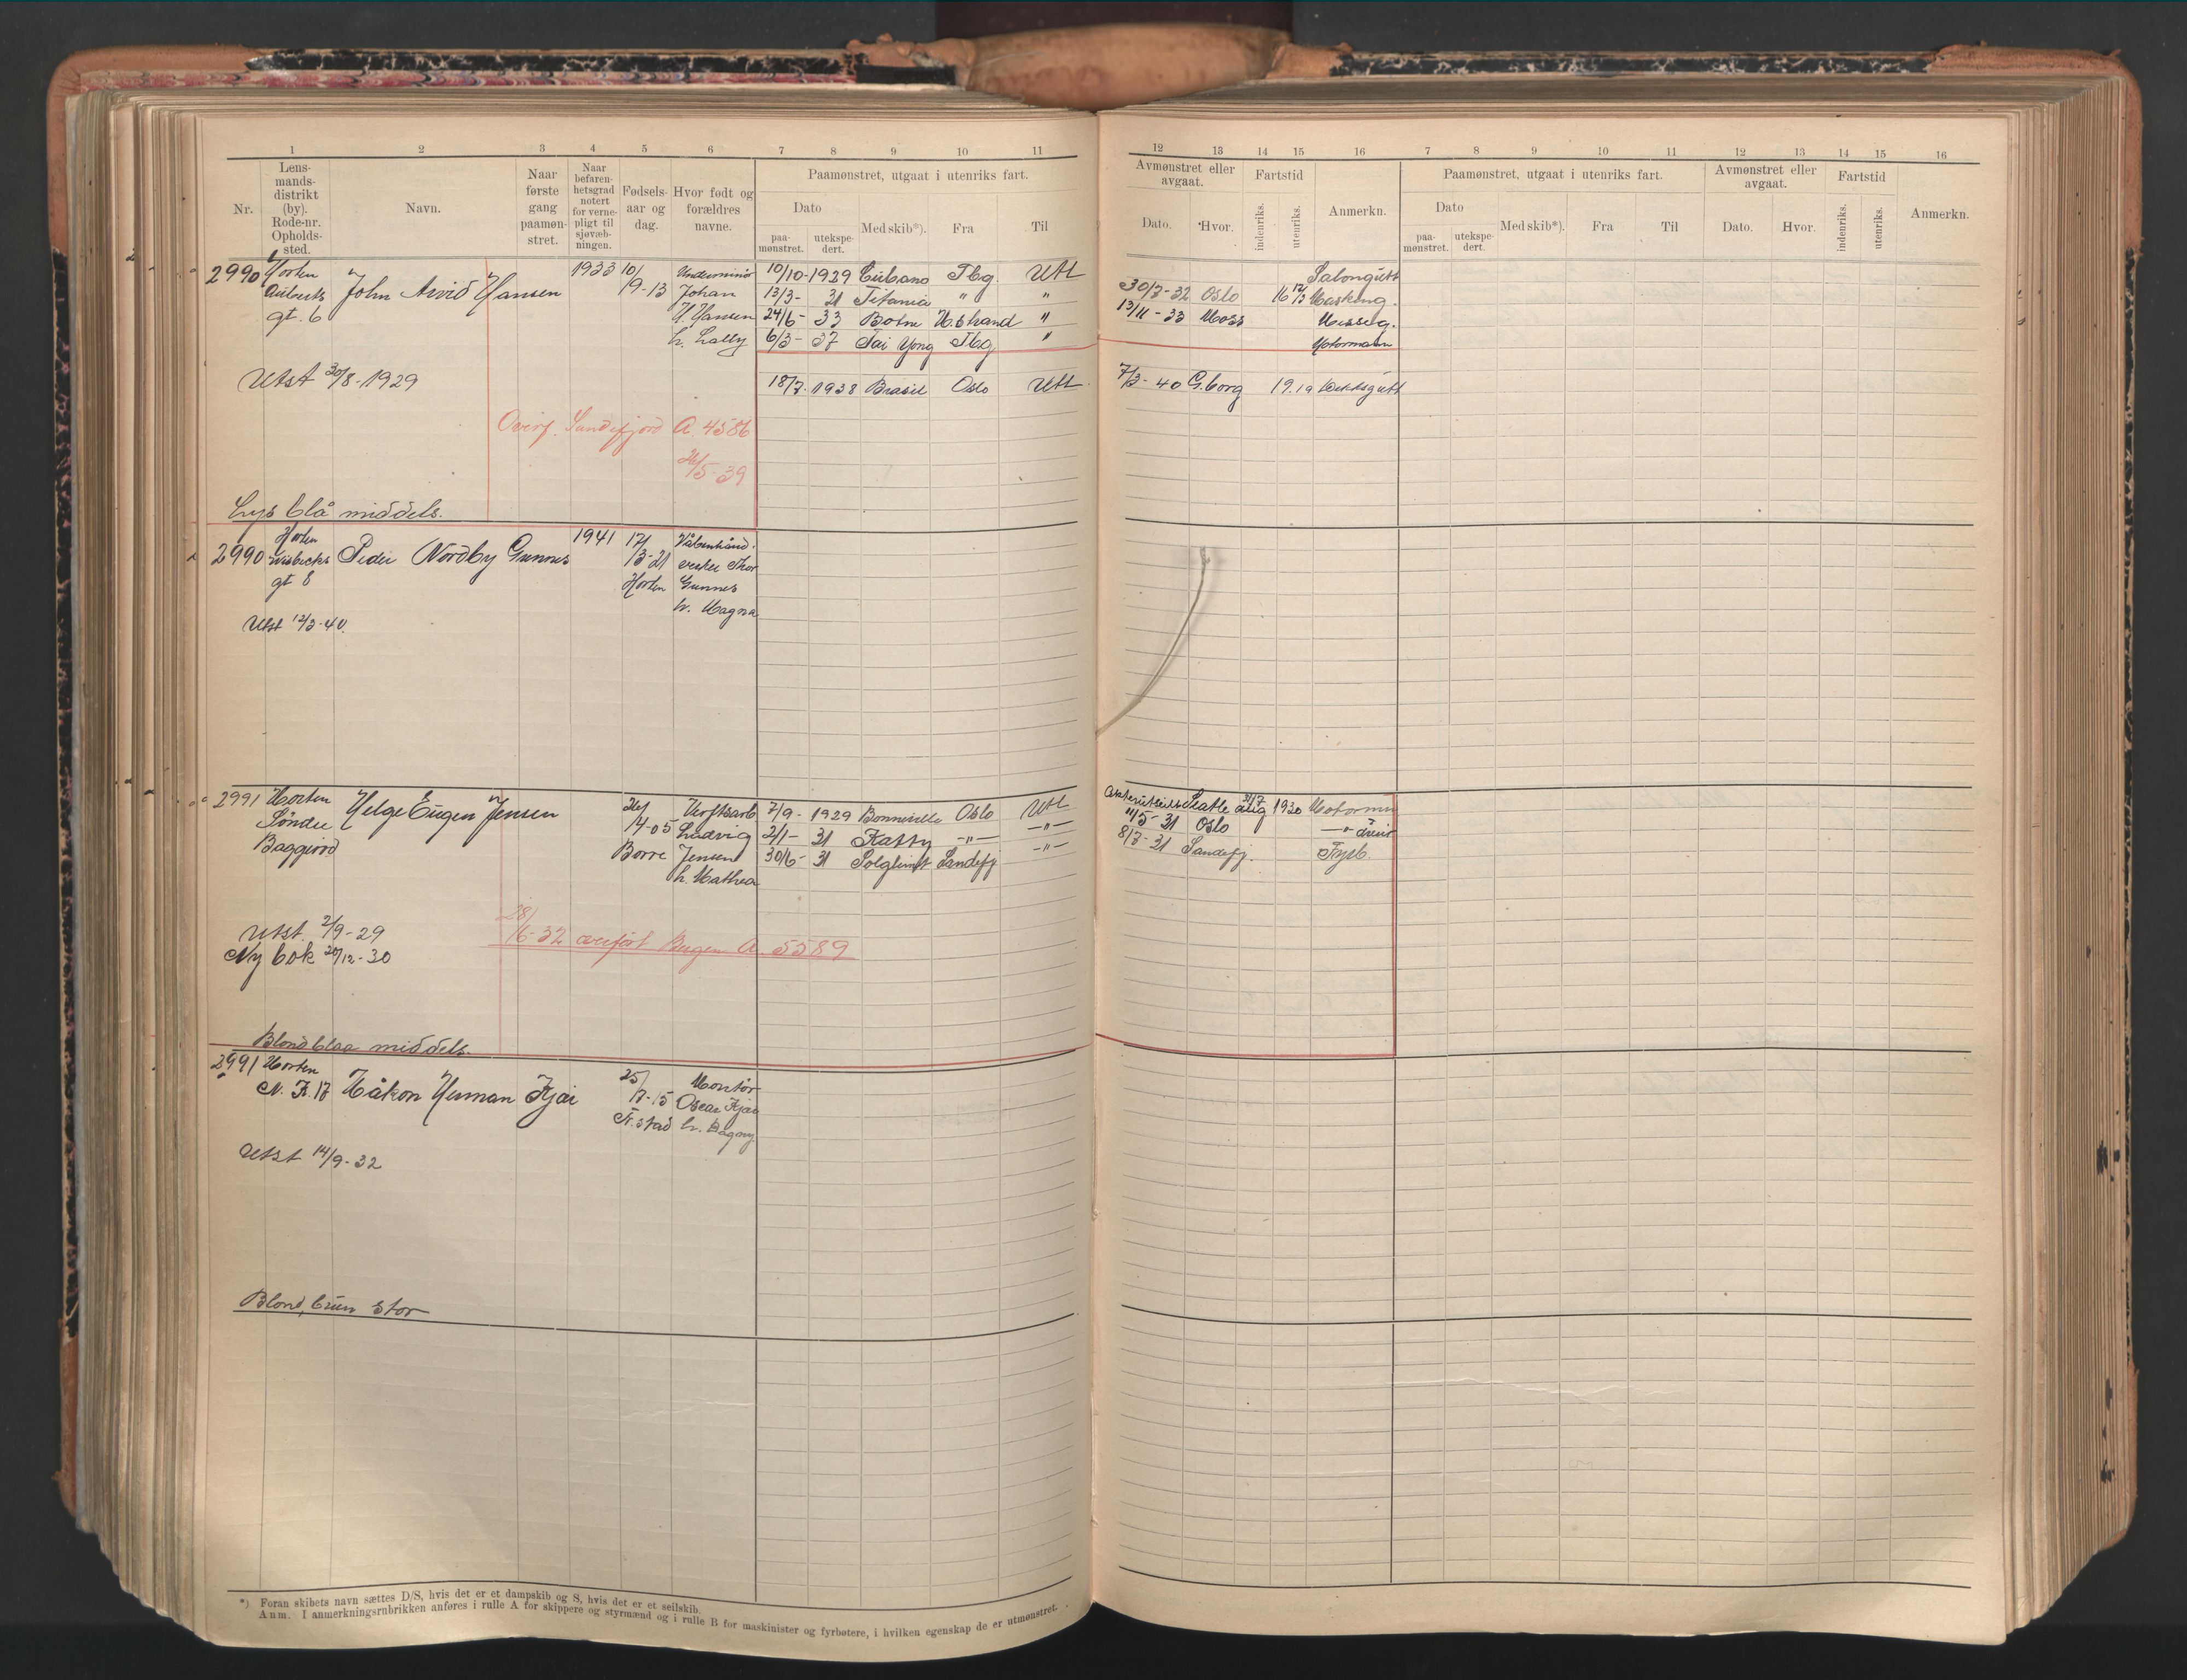 1 2 3 4 5 6 7 8 9 10 11
Nr.
Lens-
mands-
distrikt
(by).
Rode-nr.
Opholds-
sted.
Navn.
Naar
første
gang
paamøn-
stret.
Naar
befaren-
hetsgrad
notert
for verne-
pligt til
sjøvæb-
ningen.
Fødsels-
aar og
dag.
Hvor født og
forældres
navne.
Paamønstret, utgaat i utenriks fart.
Dato
paa-
mønstret.
utekspe-
dert.
Med skib*).
Fra
Til
2990 Horten John Arvid Hansen 1933 10/9-13
gt. 6
Johan
H. Hansen
h. Lally
10/10-1929 Cubano Tbg. Utl
13/3- 31 Titania " "
24/6- 33 Botne H.strand "
6/3- 37 Tai Yong Tbg "
Utst 30/8-1929
18/7-1938 Brasil Oslo Utl
Overf. Sandefjord A. 4586
26/5-39
Lys blå middels.
2990 Horten Peder Nordby Gunnes 1941 17/3-21
gt 8
Horten
Våbenhånd-
verker Thor
Gunnes
h. Magna
Utst 12/3-40.
2991 Horten Helge Eugen Jensen 26/4-05
Søndre
Baggerød
Borre
Verftsarb
Ludvig
Jensen
h. Mathea
7/9-1929 Bonneville Oslo Utl
2/1- 31 Katty -"- -"-
30/6- 31 Solglimt Sandefj -"-
Utst. 2/9-29
Ny bok 20/12-30
28/6-32 overført Bergen A. 5589
Blond blaa middels.
2991 Horten
N. F. 17 Håkon Herman Kjær 25/7-15
F.stad
Montør
Oscar Kjær
h. Dagny
Utst 14/9-32
Blond, brun stor
*) Foran skibets navn sættes D/S, hvis det er et dampskib og S, hvis det er et seilskib.
Anm. I anmerkningsrubrikken anføres i rulle A for skippere og styrmænd og i rulle B for maskinister og fyrbøtere, i hvilken egenskap de er utmønstret.
12 13 14 15 16 7 8 9 10 11 12 13 14 15 16
Avmønstret eller
avgaat.
Dato. Hvor.
Fartstid
indenriks.
utenriks.
Anmerkn.
Paamønstret, utgaat i utenriks fart.
Dato
paa-
mønstret.
utekspe-
dert.
Med skib*).
Fra
Til
Avmønstret eller
avgaat.
Dato. Hvor.
Fartstid
indenriks.
utenriks.
Anmerkn.
Salongutt
30/3-32 Oslo Masking.
13/11-33 Moss Messeg.
Motormann
7/3-40 G.borg 19.19 Dekksgutt
Seatle aug 1930 Motorm
11/5-31 Oslo
8/7-31 Sandefj. Fyrb.